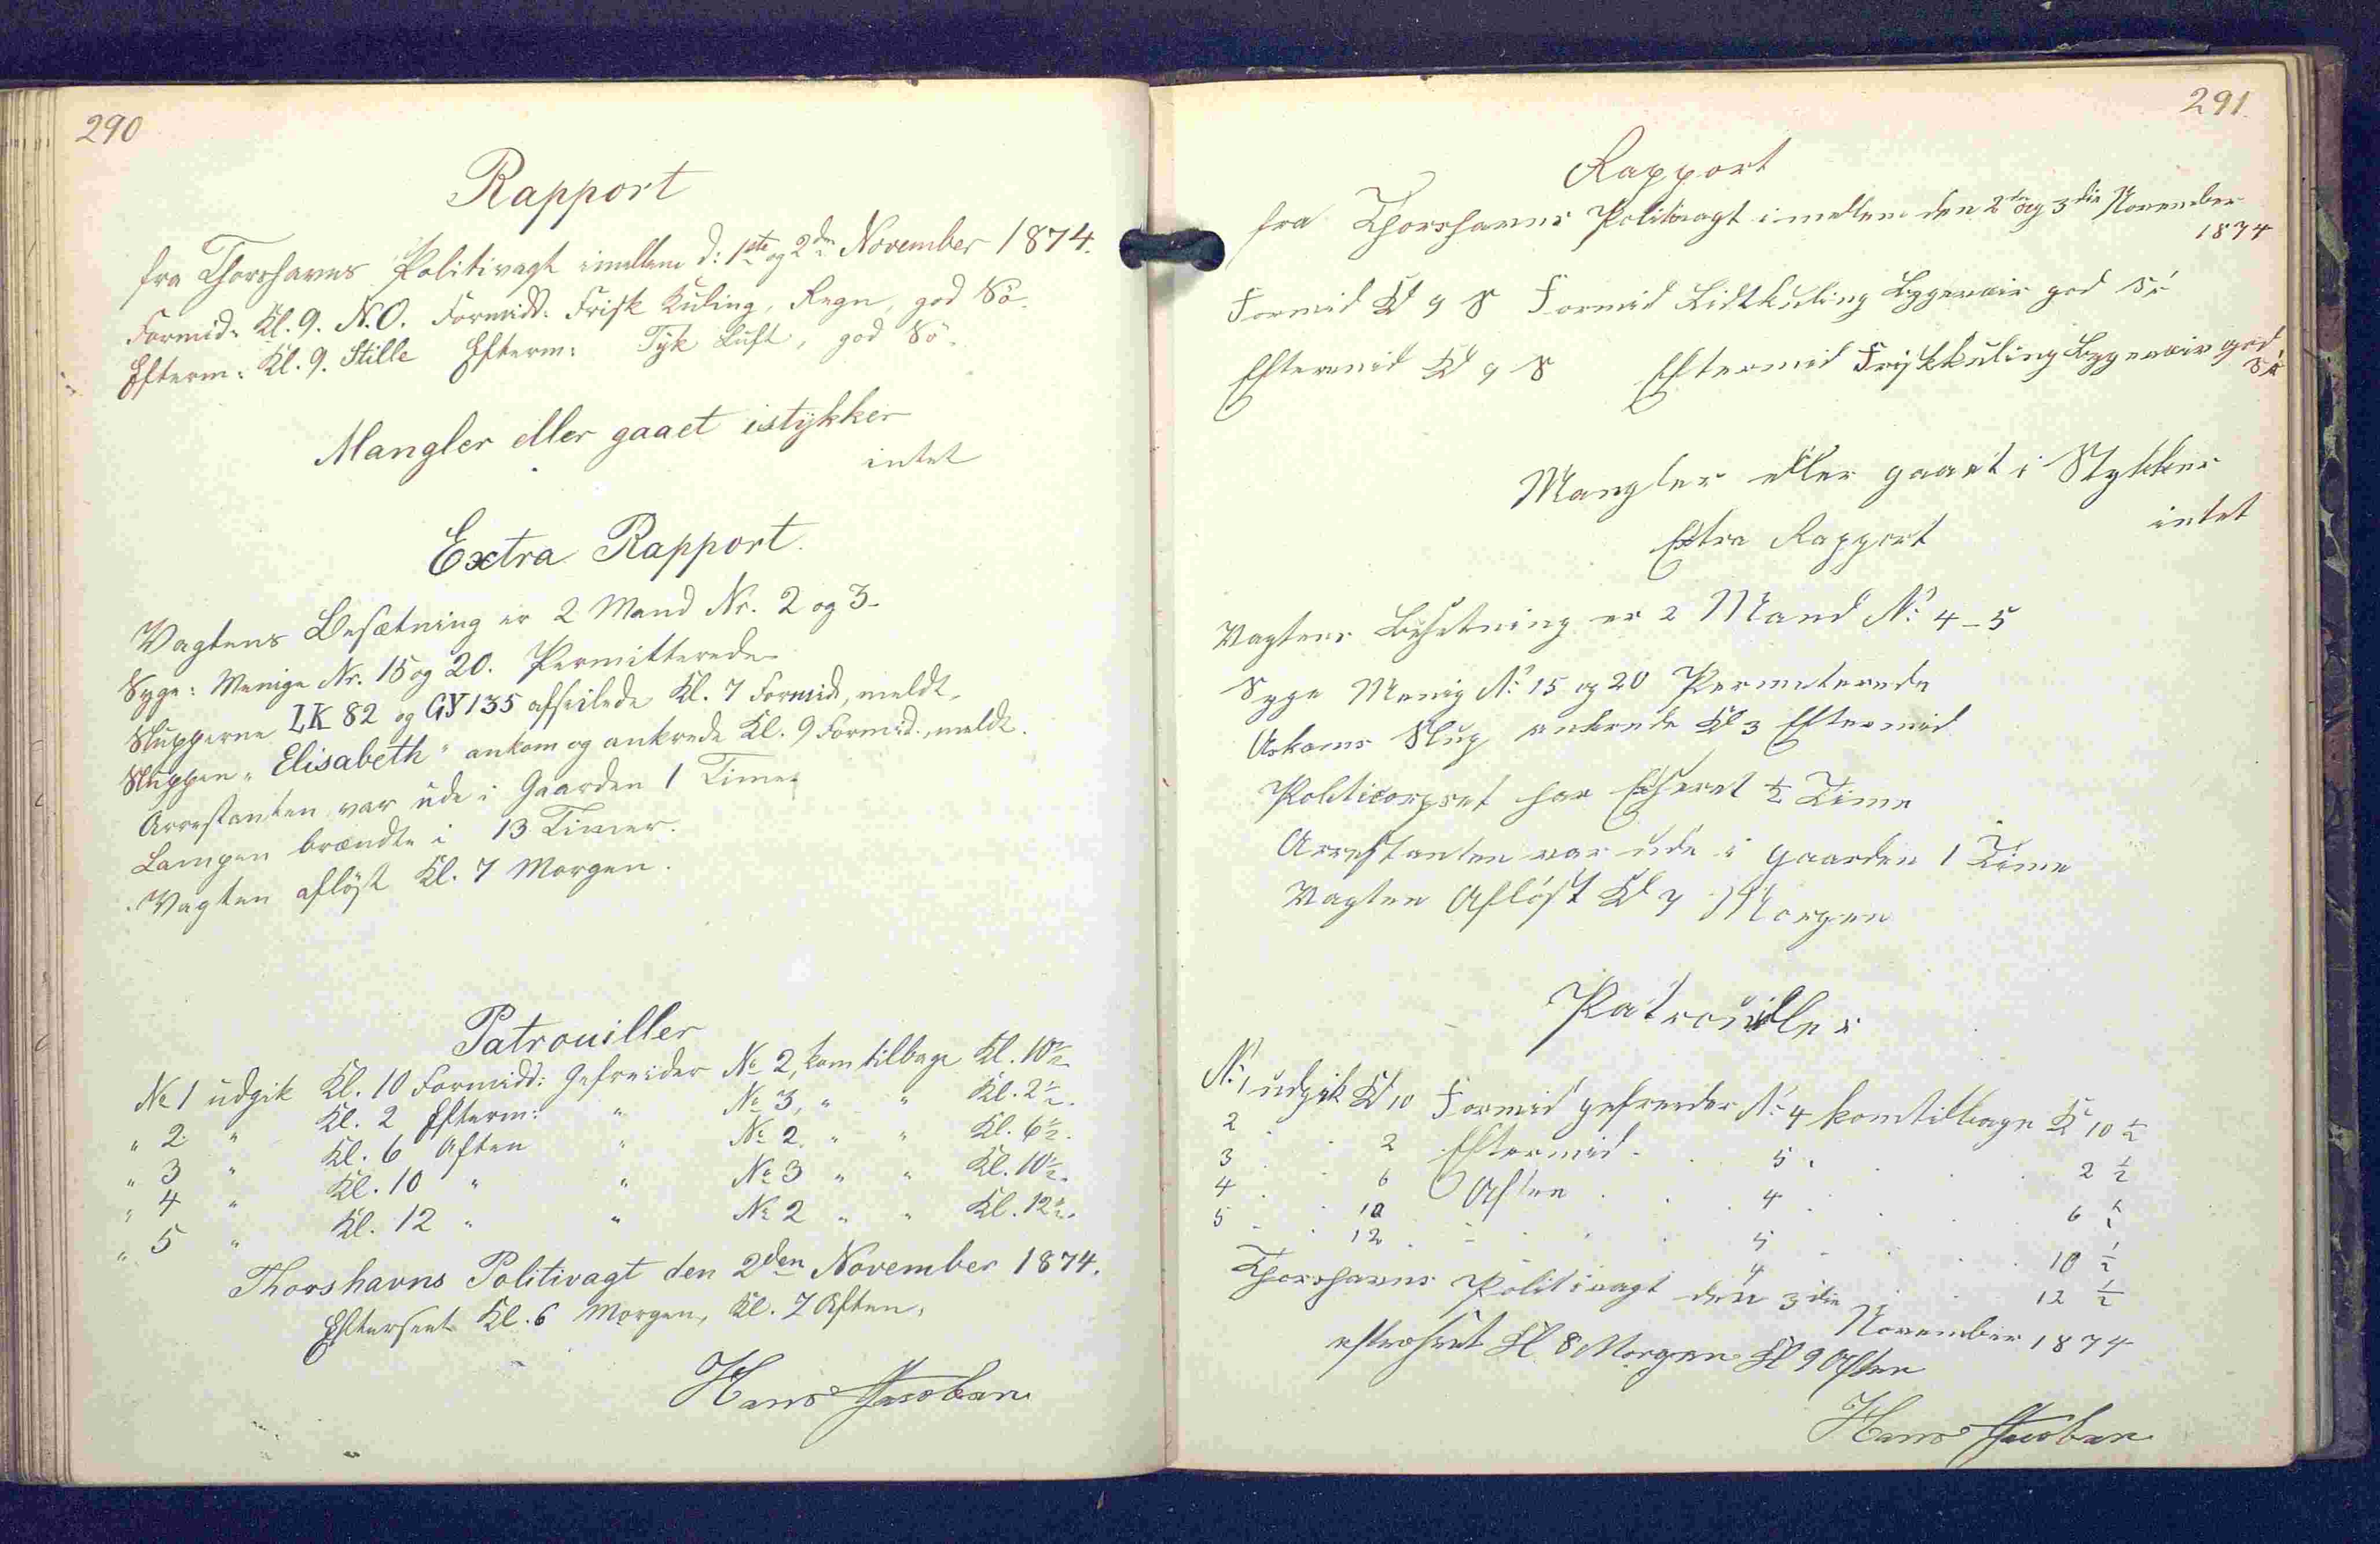 290
Rapport
fra Thorshavns Politivagt imellem d: 1ste og 2den November 1874.
Formid: Kl. 9. N.O. Formidd: Frisk Kuling, Regn, god Sö.
Efterm: Kl. 9. Stille Efterm: Tyk Luft, god Sö.
Mangler eller gaaet istykker
intet
Extra Rapport.
Vagtens Besætning er 2 Mand Nr. 2 og 3.
Syge: Menige Nr. 15 og 20. Permitterede
Slupperne LK 82 og GY135 afseilede Kl. 7 Formid, meldt.
Sluppen „Elisabeth" ankom og ankrede Kl. 9 Formid., meldt.
Arrestanten var ude i Gaarden 1 Time.
Lampen brændte i 13 Timer.
Vagten aflöst Kl. 7 Morgen.
Patrouiller
No 1 udgik Kl. 10 Formidd: Gefreider No 2, kom tilbage Kl. 10½
„ 2 „ Kl. 2 Efterm: „ No 3, „ „ Kl. 2½.
„ 3 „ Kl. 6 Aften „ No 2. „ „ Kl. 6½.
„ 4 „ Kl. 10 „ „ No 3 „ „ Kl. 10½.
„ 5 „ Kl. 12 „ „ No 2 „ „ Kl. 12½.
Thorshavns Politivagt den 2den November 1874.
Efterseet Kl. 6 Morgen, Kl. 7 Aften.
Hans Jacobsen
291.
Rapport
fra Thorshavns Politivagt imellem den 2den og 3die November
1874
Formid Kl 9 S Formid Lidtkuling Bygeveir god Sö
Eftermid Kl 9 S Eftermid Friskkuling Bygeveir god
Sö
Mangler eller gaaet i Stykker
intet
Extra Rapport
Vagtens Besetning er 2 Mand No 4-5
Syge Menig No 15 og 20 Permeterede
Slup ankrede Kl 3 Eftermid
Politicorpset har Exseret ½ Time
Arrestanten var ude i gaarden 1 Time
Vagten Aflöst Kl 7 Morgen
Patrouiller
No 1 udgik Kl 10 Formid gefreider No 4 komtilbage Kl 10 ½
2 . . 2 Eftermid . . 5 . . . 2 ½
3 . . 6 Aften . . 4 . . . 6 ½
4 . . 10 . . . 5 . . . 10 ½
5 . . 12 . . . 4 . . . 12 ½
Thorshavns Politivagt den 3die November 1874
efterseet Kl 8 Morgen Kl 9 Aften
Hans Jacobsen